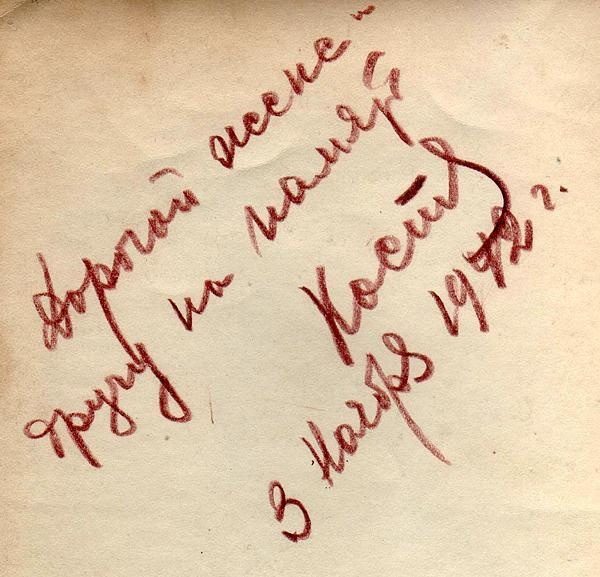 Дорогой жене-
другу на память
Костя
3 Ноября 1972 г.